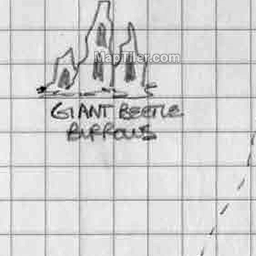 MapTiler.com
GIANT BEETLE
BURROWS